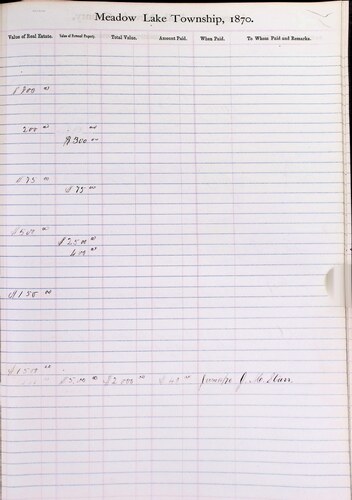 Meadow Lake Township, 1870.
Value of Real Estate. Value of Personal Property. Total Value. Amount Paid. When Paid. To Whom Paid and Remarks.
200 00
$300 00
$75 00
$75 00
$500 00
$250 00
400 00
$150 00
$1500 00
$500 00 $2000 00